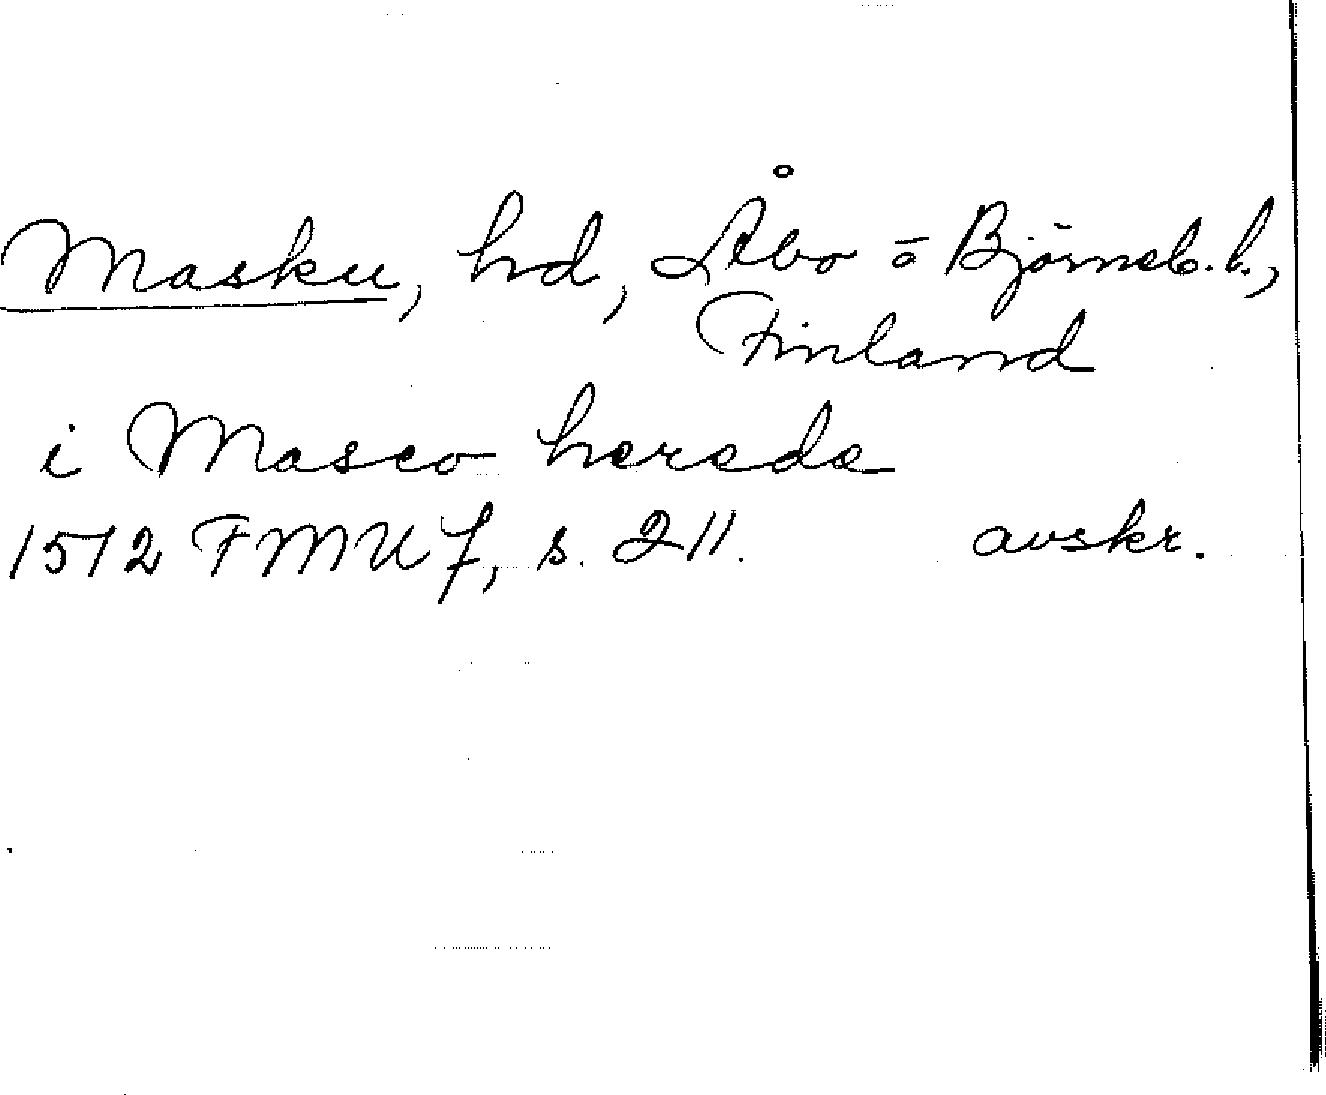 Masku, hd, Åbo o Björneb. l.,
Finland
i Masco herede
1512 FMU 7, s. 211. avskr.